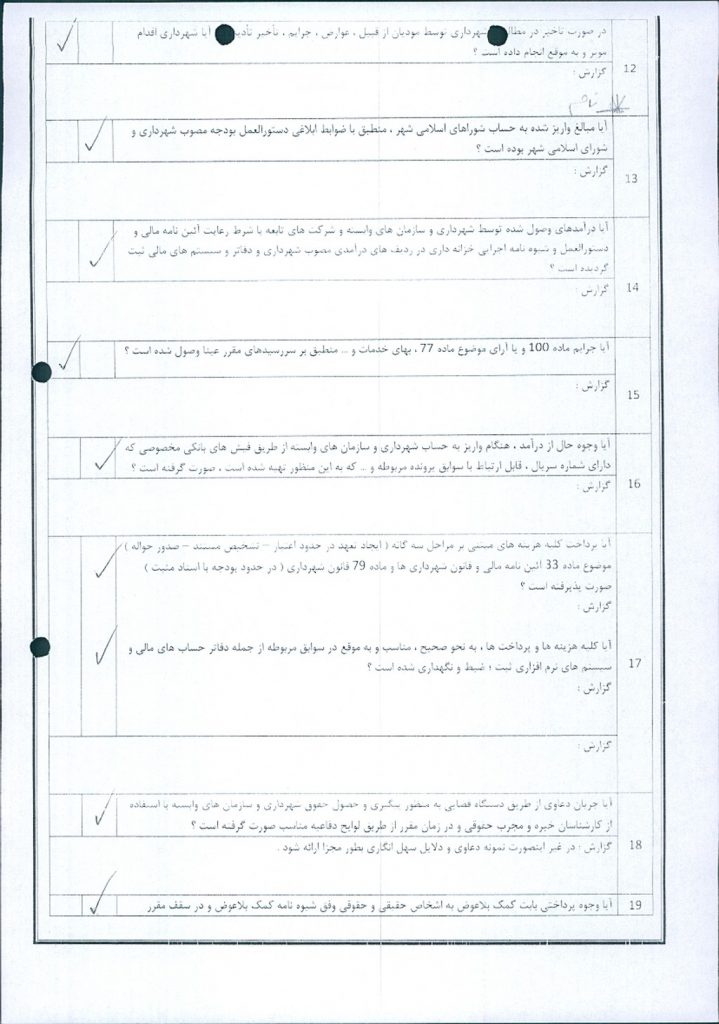 در صورت تاخیر در مطالبات شهرداری توسط مودیان از قبیل ، عوارض ، جرایم ، تأخیر تأدیه آیا شهرداری اقدام
موثر و به موقع انجام داده است ؟
12
گزارش :
آیا مبالغ واریز شده به حساب شوراهای اسلامی شهر ، منطبق با ضوابط ابلاغی دستورالعمل بودجه مصوب شهرداری و
شورای اسلامی شهر بوده است ؟
13
گزارش :
آیا درآمدهای وصول شده توسط شهرداری و سازمان های وابسته و شرکت های تابعه با شرط رعایت آئین نامه مالی و
دستورالعمل و شیوه نامه اجرایی خزانه داری در ردیف های درآمدی مصوب شهرداری و دفاتر و سیستم های مالی ثبت
گردیده است ؟
14
گزارش :
آیا جرایم ماده 100 و یا آرای موضوع ماده 77 ، بهای خدمات و ... منطبق بر سررسیدهای مقرر عینا وصول شده است ؟
15
گزارش :
آیا وجوه حال از درآمد ، هنگام واریز به حساب شهرداری و سازمان های وابسته از طریق فیش های بانکی مخصوصی که
دارای شماره سریال ، قابل ارتباط با سوابق پرونده مربوطه و ... که به این منظور تهیه شده است ، صورت گرفته است ؟
16
گزارش :
آیا پرداخت کلیه هزینه های مبتنی بر مراحل سه گانه ( ایجاد تعهد در حدود اعتبار – تشخیص مستند – صدور حواله )
موضوع ماده 33 آئین نامه مالی و قانون شهرداری ها و ماده 79 قانون شهرداری ( در حدود بودجه با اسناد مثبت )
صورت پذیرفته است ؟
گزارش :
آیا کلیه هزینه ها و پرداخت ها ، به نحو صحیح ، مناسب و به موقع در سوابق مربوطه از جمله دفاتر حساب های مالی و
سیستم های نرم افزاری ثبت ؛ ضبط و نگهداری شده است ؟
17
گزارش :
گزارش :
آیا جریان دعاوی از طریق دستگاه قضایی به منظور پیگیری و حصول حقوق شهرداری و سازمان های وابسته با استفاده
از کارشناسان خبره و مجرب حقوقی و در زمان مقرر از طریق لوایح دفاعیه مناسب صورت گرفته است ؟
18
گزارش : در غیر اینصورت نمونه دعاوی و دلایل سهل انگاری بطور مجزا ارائه شود .
19
آیا وجوه پرداختی بابت کمک بلاعوض به اشخاص حقیقی و حقوقی وفق شیوه نامه کمک بلاعوض و در سقف مقرر